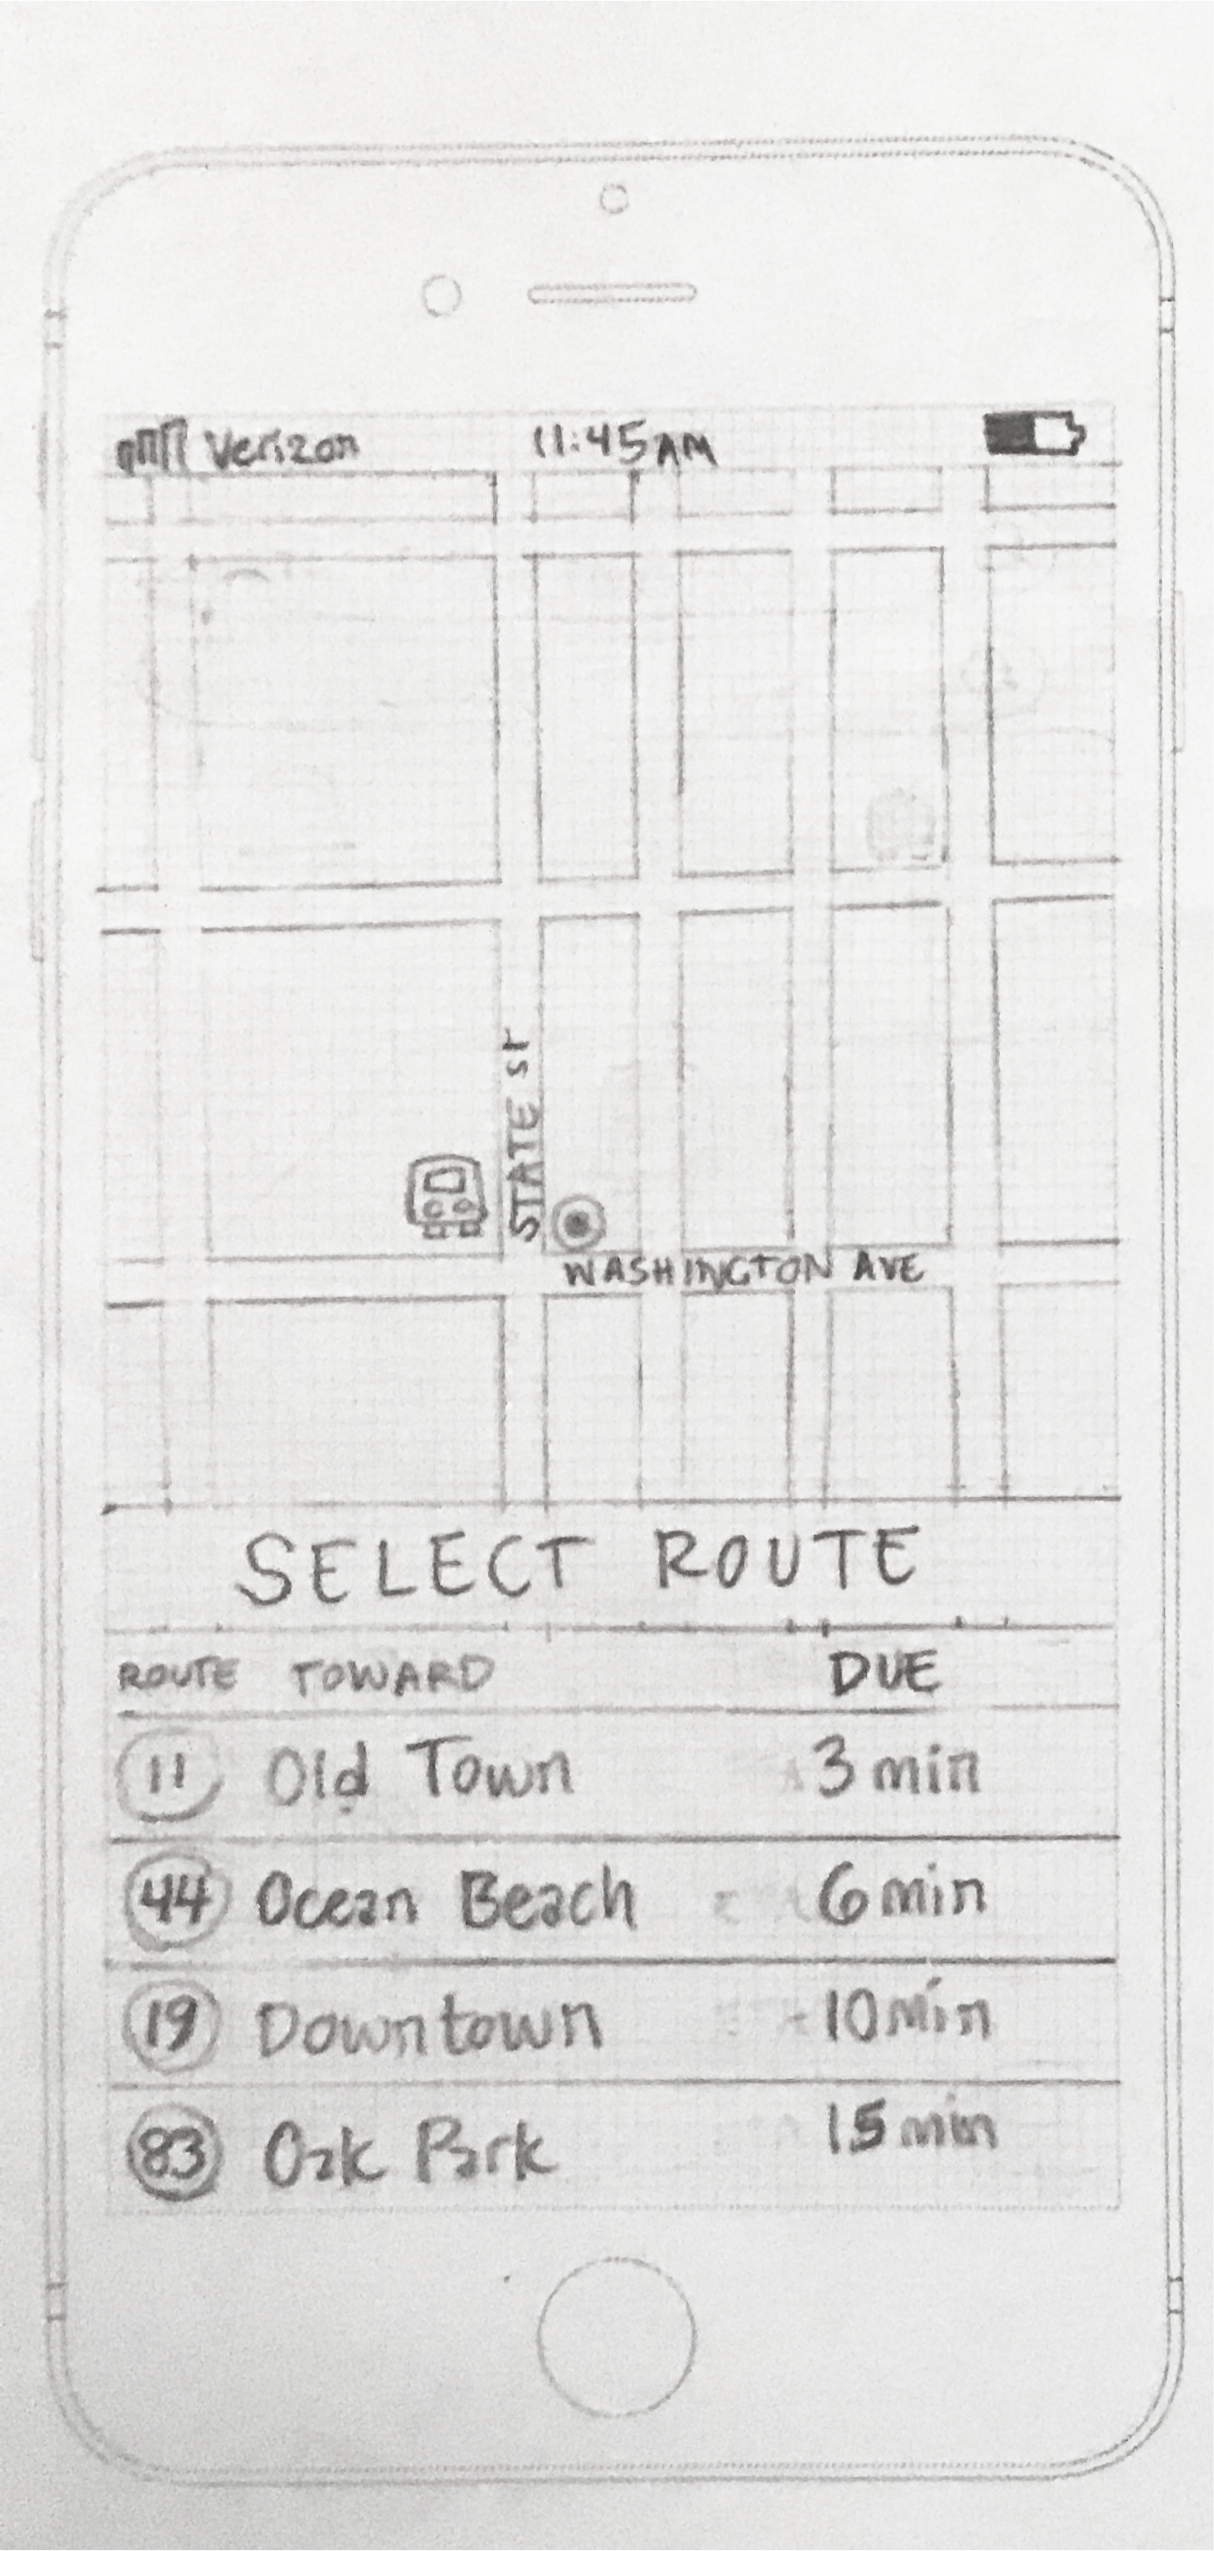 Verizon 11:45AM
STATE ST
WASHINGTON AVE
SELECT ROUTE
ROUTE TOWARD DUE
11 Old Town 3 min
44 Ocean Beach 6 min
19 Downtown 10 min
83 Oak Park 15 min